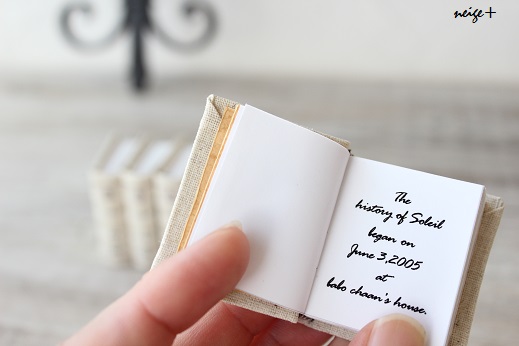 neige+
The
history of Soleil
began on
June 3,2005
at
babo chaan's house.